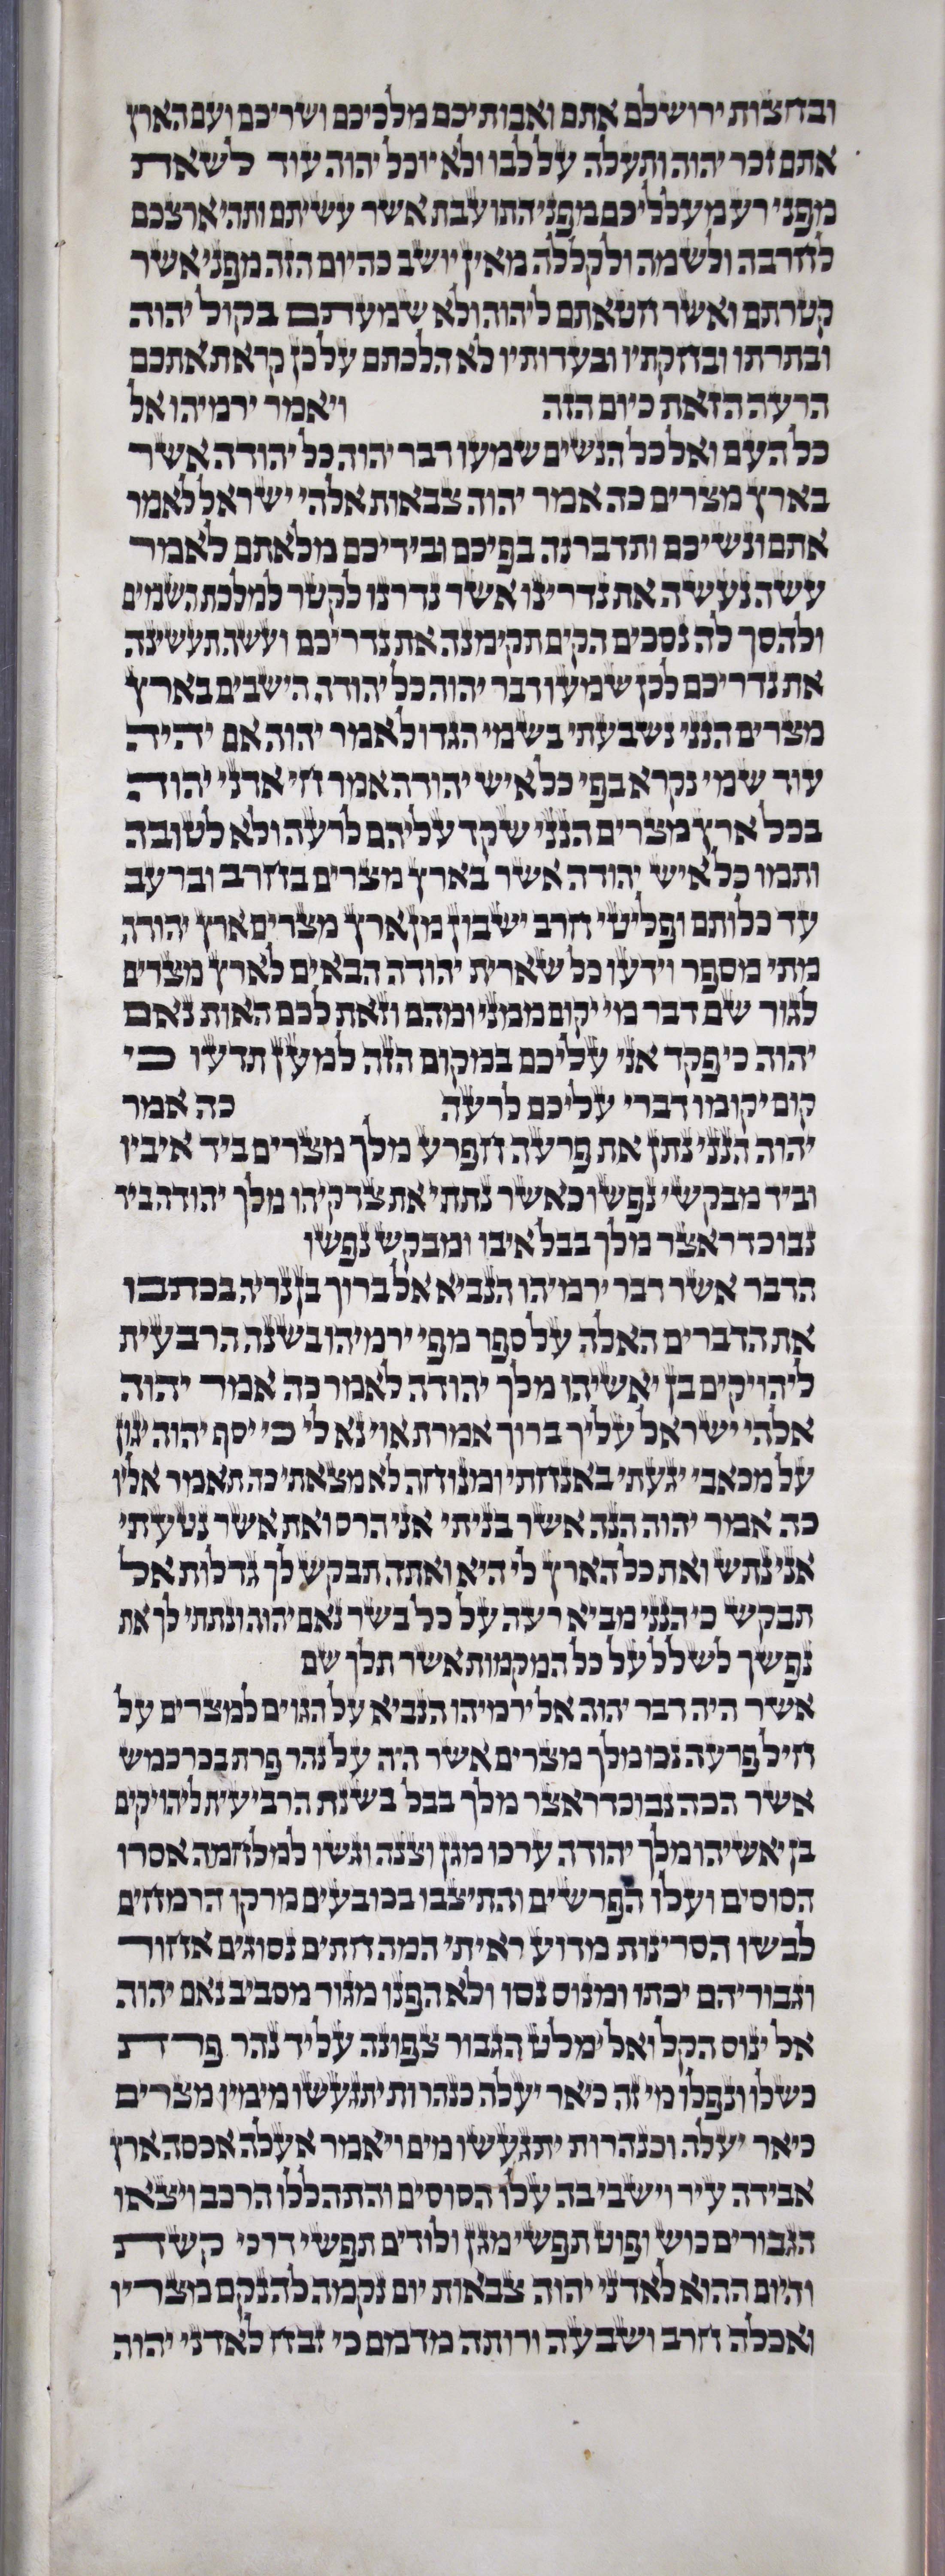 ובחצות ירושלם אתם ואבותיכם מלכיכם ושריכם ועם הארץ
אתם זכר יהוה ותעלה על לבו ולא יוכל יהוה עוד לשאת
מפני רע מעלליכם מפני התועבת אשר עשיתם ותהי ארצכם
לחרבה ולשמה ולקללה מאין יושב כהיום הזה מפני אשר
קטרתם ואשר חטאתם ליהוה ולא שמעתם בקול יהוה
ובתרתו ובחקתיו ובעדותיו לא הלכתם על כן קראת אתכם
הרעה הזאת כיום הזה ויאמר ירמיהו אל
כל העם ואל כל הנשים שמעו דבר יהוה כל יהודה אשר
בארץ מצרים כה אמר יהוה צבאות אלהי ישראל לאמר
אתם ונשיכם ותדברנה בפיכם ובידיכם מלאתם לאמר
עשה נעשה את נדרינו אשר נדרנו לקטר למלכת השמים
ולהסך לה נסכים הקים תקימנה את נדריכם ועשה תעשינה
את נדריכם לכן שמעו דבר יהוה כל יהודה הישבים בארץ
מצרים הנני נשבעתי בשמי הגדול אמר יהוה אם יהיה
עוד שמי נקרא בפי כל איש יהודה אמר חי אדני יהוה
בכל ארץ מצרים הנני שקד עליהם לרעה ולא לטובה
ותמו כל איש יהודה אשר בארץ מצרים בחרב וברעב
עד כלותם ופליטי חרב ישבון מן ארץ מצרים ארץ יהודה
מתי מספר וידעו כל שארית יהודה הבאים לארץ מצרים
לגור שם דבר מי יקום ממני ומהם וזאת לכם האות נאם
יהוה כי פקד אני עליכם במקום הזה למען תדעו כי
קום יקומו דברי עליכם לרעה כה אמר
יהוה הנני נתן את פרעה חפרע מלך מצרים ביד איביו
וביד מבקשי נפשו כאשר נתתי את צדקיהו מלך יהודה ביד
נבוכדראצר מלך בבל איבו ומבקש נפשו
הדבר אשר דבר ירמיהו הנביא אל ברוך בן נריה בכתבו
את הדברים האלה על ספר מפי ירמיהו בשנה הרבעית
ליהויקים בן יאשיהו מלך יהודה לאמר כה אמר יהוה
אלהי ישראל עליך ברוך אמרת אוי נא לי כי יסף יהוה יגון
על מכאבי יגעתי באנחתי ומנוחה לא מצאתי כה תאמר אליו
כה אמר יהוה הנה אשר בניתי אני הרס ואת אשר נטעתי
אני נתש ואת כל הארץ לי היא ואתה תבקש לך גדלות אל
תבקש כי הנני מביא רעה על כל בשר נאם יהוה ונתתי לך את
נפשך לשלל על כל המקמות אשר תלך שם
אשר היה דבר יהוה אל ירמיהו הנביא על הגוים למצרים על
חיל פרעה נכו מלך מצרים אשר היה על נהר פרת בכרכמש
אשר הכה נבוכדראצר מלך בבל בשנת הרביעית ליהויקים
בן יאשיהו מלך יהודה ערכו מגן וצנה וגשו למלחמה אסרו
הסוסים ועלו הפרשים והתיצבו בכובעים מרקו הרמחים
לבשו הסרינות מדוע ראיתי המה חתים נסוגים אחור
וגבוריהם יכתו ומנוס נסו ולא הפנו מגור מסביב נאם יהוה
אל ינוס הקל ואל ימלט הגבור צפונה על יד נהר פרת
כשלו ונפלו מי זה כיאר יעלה כנהרות יתגעשו מימיו מצרים
כיאר יעלה וכנהרות יתגעשו מים ויאמר אעלה אכסה ארץ
אבידה עיר וישבי בה עלו הסוסים והתהללו הרכב ויצאו
הגבורים כוש ופוט תפשי מגן ולודים תפשי דרכי קשת
והיום ההוא לאדני יהוה צבאות יום נקמה להנקם מצריו
ואכלה חרב ושבעה ורותה מדמם כי זבח לאדני יהוה